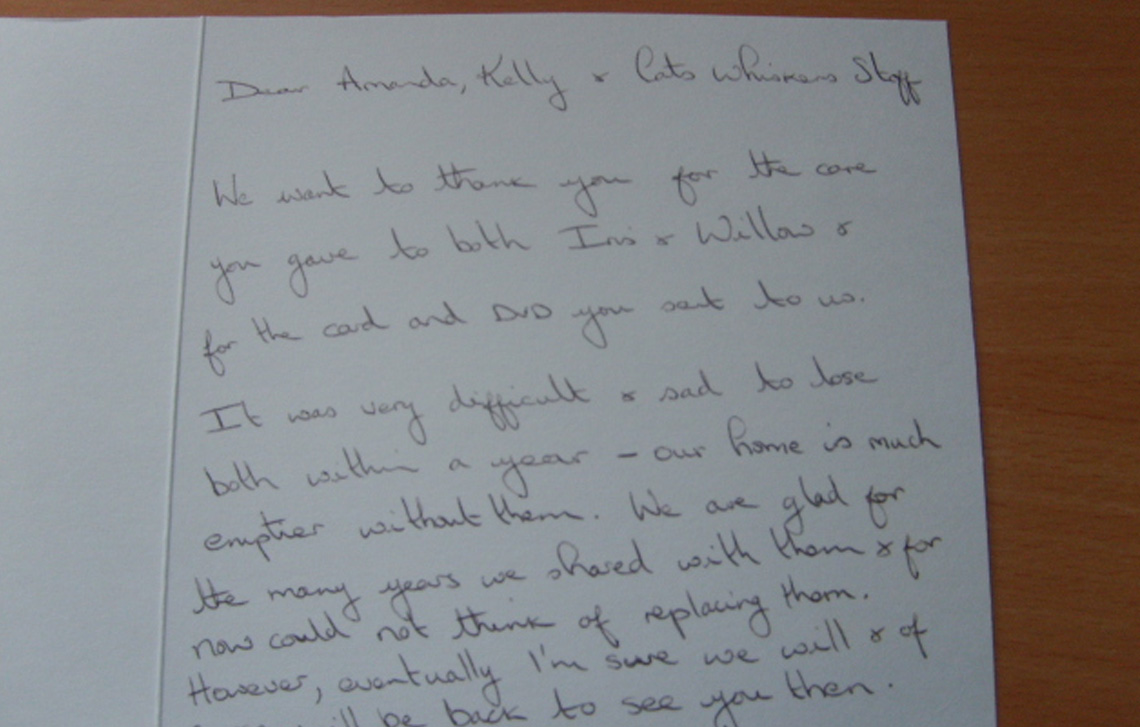 Dear Amanda, Kelly & Cats Whiskers Staff
We want to thank you for the care
you gave to both Iris & Willow &
for the card and DVD you sent to us.
It was very difficult & sad to lose
both within a year - our home is much
emptier without them. We are glad for
the many years we shared with them & for
now could not think of replacing them.
However, eventually I'm sure we will & of
will be back to see you then.